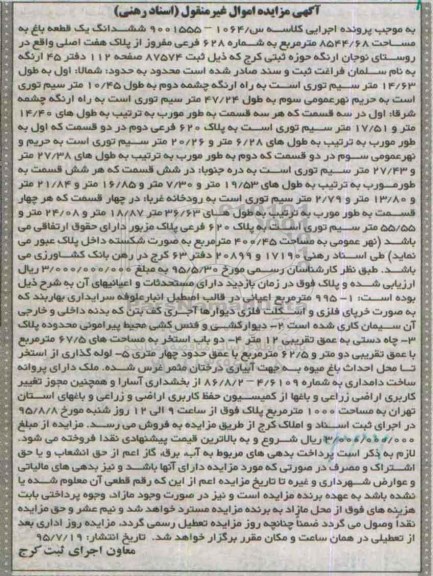 آگهی مزایده اموال غیرمنقول (اسناد رهنی)
به موجب پرونده اجرایی کلاسه س/۱۰۶۴- ۹۰۰۱۵۵۵ ششدانگ یک قطعه باغ به
مساحت ۸۵۴۴/۶۸ مترمربع به شماره ۶۲۸ فرعی مفروز از پلاک هفت اصلی واقع در
روستای نوجان ارنگه حوزه ثبتی کرج که ذیل ثبت ۸۷۵۷۴ صفحه ۱۱۲ دفتر ۴۵ ارنگه
به نام سلمان فراغت ثبت و سند صادر شده است محدود به حدود: شمالا: اول به طول
۱۴/۶۳ متر سیم توری است به راه ارنگه چشمه دوم به طول ۱۰/۴۵ متر سیم توری
است به حریم نهرعمومی سوم به طول ۴۷/۲۴ متر سیم توری است به راه ارنگه چشمه
شرقا: اول در سه قسمت که هر سه قسمت به طور مورب به ترتیب به طول های ۱۴/۴۰
متر و ۱۷/۵۱ متر سیم توری است به پلاک ۶۲۰ فرعی دوم در دو قسمت که اول به
طور مورب به ترتیب به طول های ۶/۲۸ متر و ۲۰/۲۶ متر سیم توری است به حریم و
نهرعمومی سوم در دو قسمت که دوم به طور مورب به ترتیب به طول های ۲۷/۳۸ متر
و ۲۷/۴۳ متر سیم توری است به دره جنوبا: در شش قسمت که هر شش قسمت به
طورمورب به ترتیب به طول های ۱۹/۵۳ متر و ۷/۳۰ متر و ۱۶/۸۵ متر و ۲۱/۸۴ متر
و ۱۳/۸۰ متر و ۲/۷۹ متر سیم توری است به رودخانه غربا: در چهار قسمت که هر چهار
قسمت به طور مورب به ترتیب به طول های ۳۶/۶۳ متر ۱۸/۸۷ متر و ۲۴/۰۸ متر و
۵۵/۵۵ متر سیم توری است به پلاک ۶۲۰ فرعی پلاک مزبور دارای حقوق ارتفاقی می
باشد (نهر عمومی به مساحت ۴۰۰/۴۵ مترمربع به صورت شکسته داخل پلاک عبور می
نماید) طی اسناد رهنی ۱۷۱۹۰ و ۲۰۸۹۹ دفتر ۶۳ کرج در رهن بانک کشاورزی می
باشد. طبق نظر کارشناسان رسمی مورخ ۹۵/۵/۳۰ به مبلغ ۳/۰۰۰/۰۰۰/۰۰۰ ریال
ارزیابی شده و پلاک فوق در زمان بازدید دارای مستحدثات و اعیانیهای آن به شرح ذیل
بوده است: ۱- ۹۹۵ مترمربع اعیانی در قالب اصطبل انبارعلوفه سرایداری بهاربند که
به صورت خرپای فلزی و اسکلت فلزی دیوارها آجری کف بتن که بدنه داخلی و خارجی
آن سیمان کاری شده است ۲- دیوارکشی و فنس کشی محیط پیرامونی محدوده پلاک
۳- چاه دستی به عمق تقریبی ۱۲ متر ۴- دو باب استخر به مساحت های ۶۷/۵ مترمربع
با عمق تقریبی دو متر و ۶۲/۵ مترمربع با عمق حدود چهار متری ۵- لوله گذاری از استخر
تا محل احداث باغ میوه به جهت آبیاری درختان مثمر غرس شده. ملک دارای پروانه
ساخت دامداری به شماره ۴/۶۱۰۹- ۸۶/۸/۲ از بخشداری آسارا و همچنین مجوز تغییر
کاربری اراضی زراعی و باغها از کمیسیون حفظ کاربری اراضی و زراعی و باغهای استان
تهران به مساحت ۱۰۰۰ مترمربع پلاک فوق از ساعت ۹ الی ۱۲ روز شنبه مورخ ۹۵/۸/۸
در اجرای ثبت اسناد و املاک کرج از طریق مزایده به فروش می رسد. مزایده از مبلغ
۳/۰۰۰/۰۰۰/۰۰۰ ریال شروع و به بالاترین قیمت پیشنهادی نقدا فروخته می شود.
لازم به ذکر است پرداخت بدهی های مربوط به آب، برق، گاز اعم از حق انشعاب و یا حق
اشتراک و مصرف در صورتی که مورد مزایده دارای آنها باشد و نیز بدهی های مالیاتی
و عوارض شهرداری و غیره تا تاریخ مزایده اعم از این که رقم قطعی آن معلوم شده یا
نشده باشد به عهده برنده مزایده است و نیز در صورت وجود مازاد، وجوه پرداختی بابت
هزینه های فوق از محل مازاد به برنده مزایده مسترد خواهد شد و نیم عشر و حق مزایده
نقدا وصول می گردد ضمناً چنانچه روز مزایده تعطیل رسمی گردد، مزایده روز اداری بعد
از تعطیلی در همان ساعت و مکان مقرر برگزار خواهد شد. تاریخ انتشار: ۹۵/۷/۱۹
معاون اجرای ثبت کرج